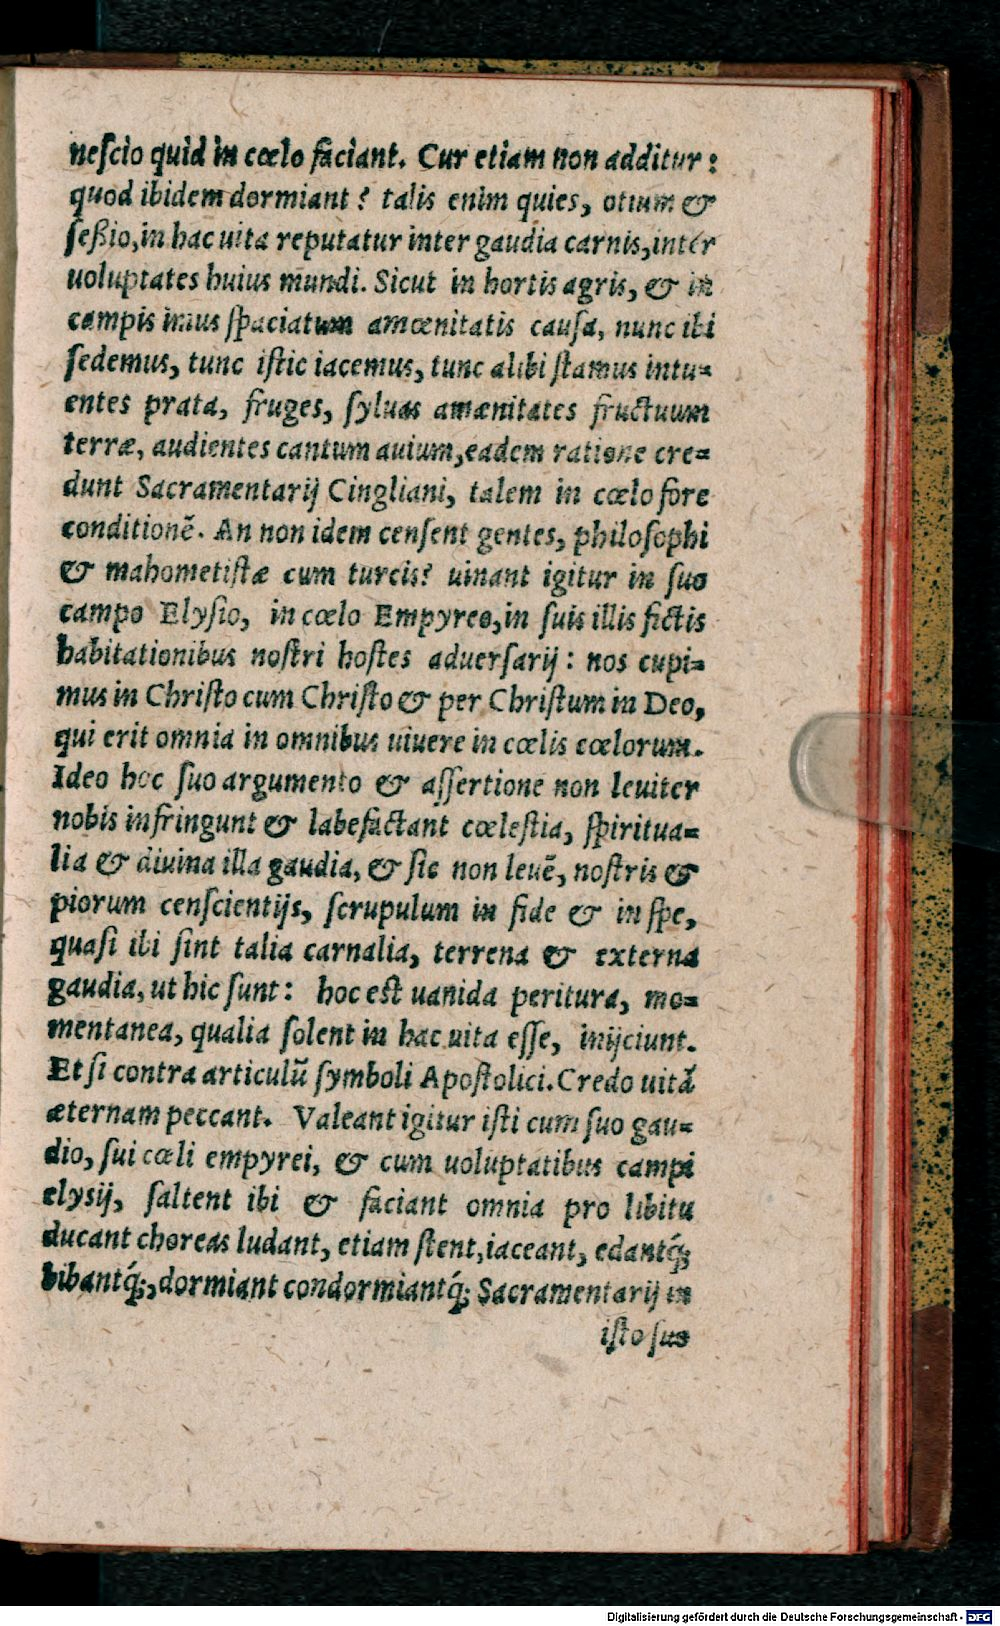 neſcio quid in cœlo faciant. Cur etiam non additur:
quod ibidem dormiant? talis enim quies, otium &
ſeßio, in hac uita reputatur inter gaudia carnis, inter
uoluptates huius mundi. Sicut in hortis agris, & in
campis imus ſpaciatum amœnitatis cauſa, nunc ibi
ſedemus, tunc iſtic iacemus, tunc alibi ſtamus intu=
entes prata, fruges, ſyluas amænitates fructuum
terræ, audientes cantum auium, eadem ratione cre=
dunt Sacramentarij Cingliani, talem in cœlo fore
conditionē. An non idem cenſent gentes, philoſophi
& mahometiſtæ cum turcis? uiuant igitur in ſuo
campo Elyſio, in cœlo Empyreo, in ſuis illis fictis
habitationibus noſtri hoſtes aduerſarij: nos cupi=
mus in Chriſto cum Chriſto & per Chriſtum in Deo,
qui erit omnia in omnibus uiuere in cœlis cœlorum.
Ideo hoc ſuo argumento & aſſertione non leuiter
nobis infringunt & labefactant cœleſtia, ſpiritua=
lia & diuina illa gaudia, & ſic non leuē, noſtris &
piorum cenſcientijs, ſcrupulum in fide & in ſpe,
quaſi ibi ſint talia carnalia, terrena & externa
gaudia, ut hic ſunt: hoc eſt uanida peritura, mo=
mentanea, qualia ſolent in hac uita eſſe, inijciunt.
Et ſi contra articulū ſymboli Apoſtolici. Credo uitā
æternam peccant. Valeant igitur iſti cum ſuo gau=
dio, ſui cœli empyrei, & cum uoluptatibus campi
elysij, ſaltent ibi & faciant omnia pro libitu
ducant choreas ludant, etiam ſtent, iaceant, edantq́;
bibantq́;, dormiant condormiantq́; Sacramentarij in
iſto ſuo
Digitalisierung gefördert durch die Deutsche Forschungsgemeinschaft - DFG